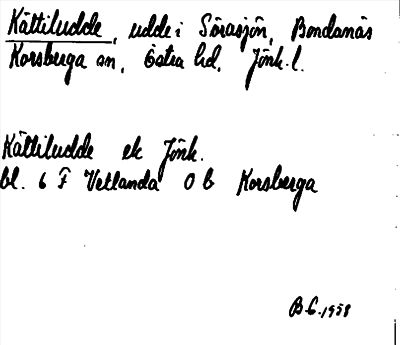 Kättiludde, udde i Sörasjön, Bondanäs
Korsberga sn, Östra hd, Jönk. l.
Kättiludde ek Jönk.
bl. 6 F Vetlanda O b Korsberga
B.G. 1958